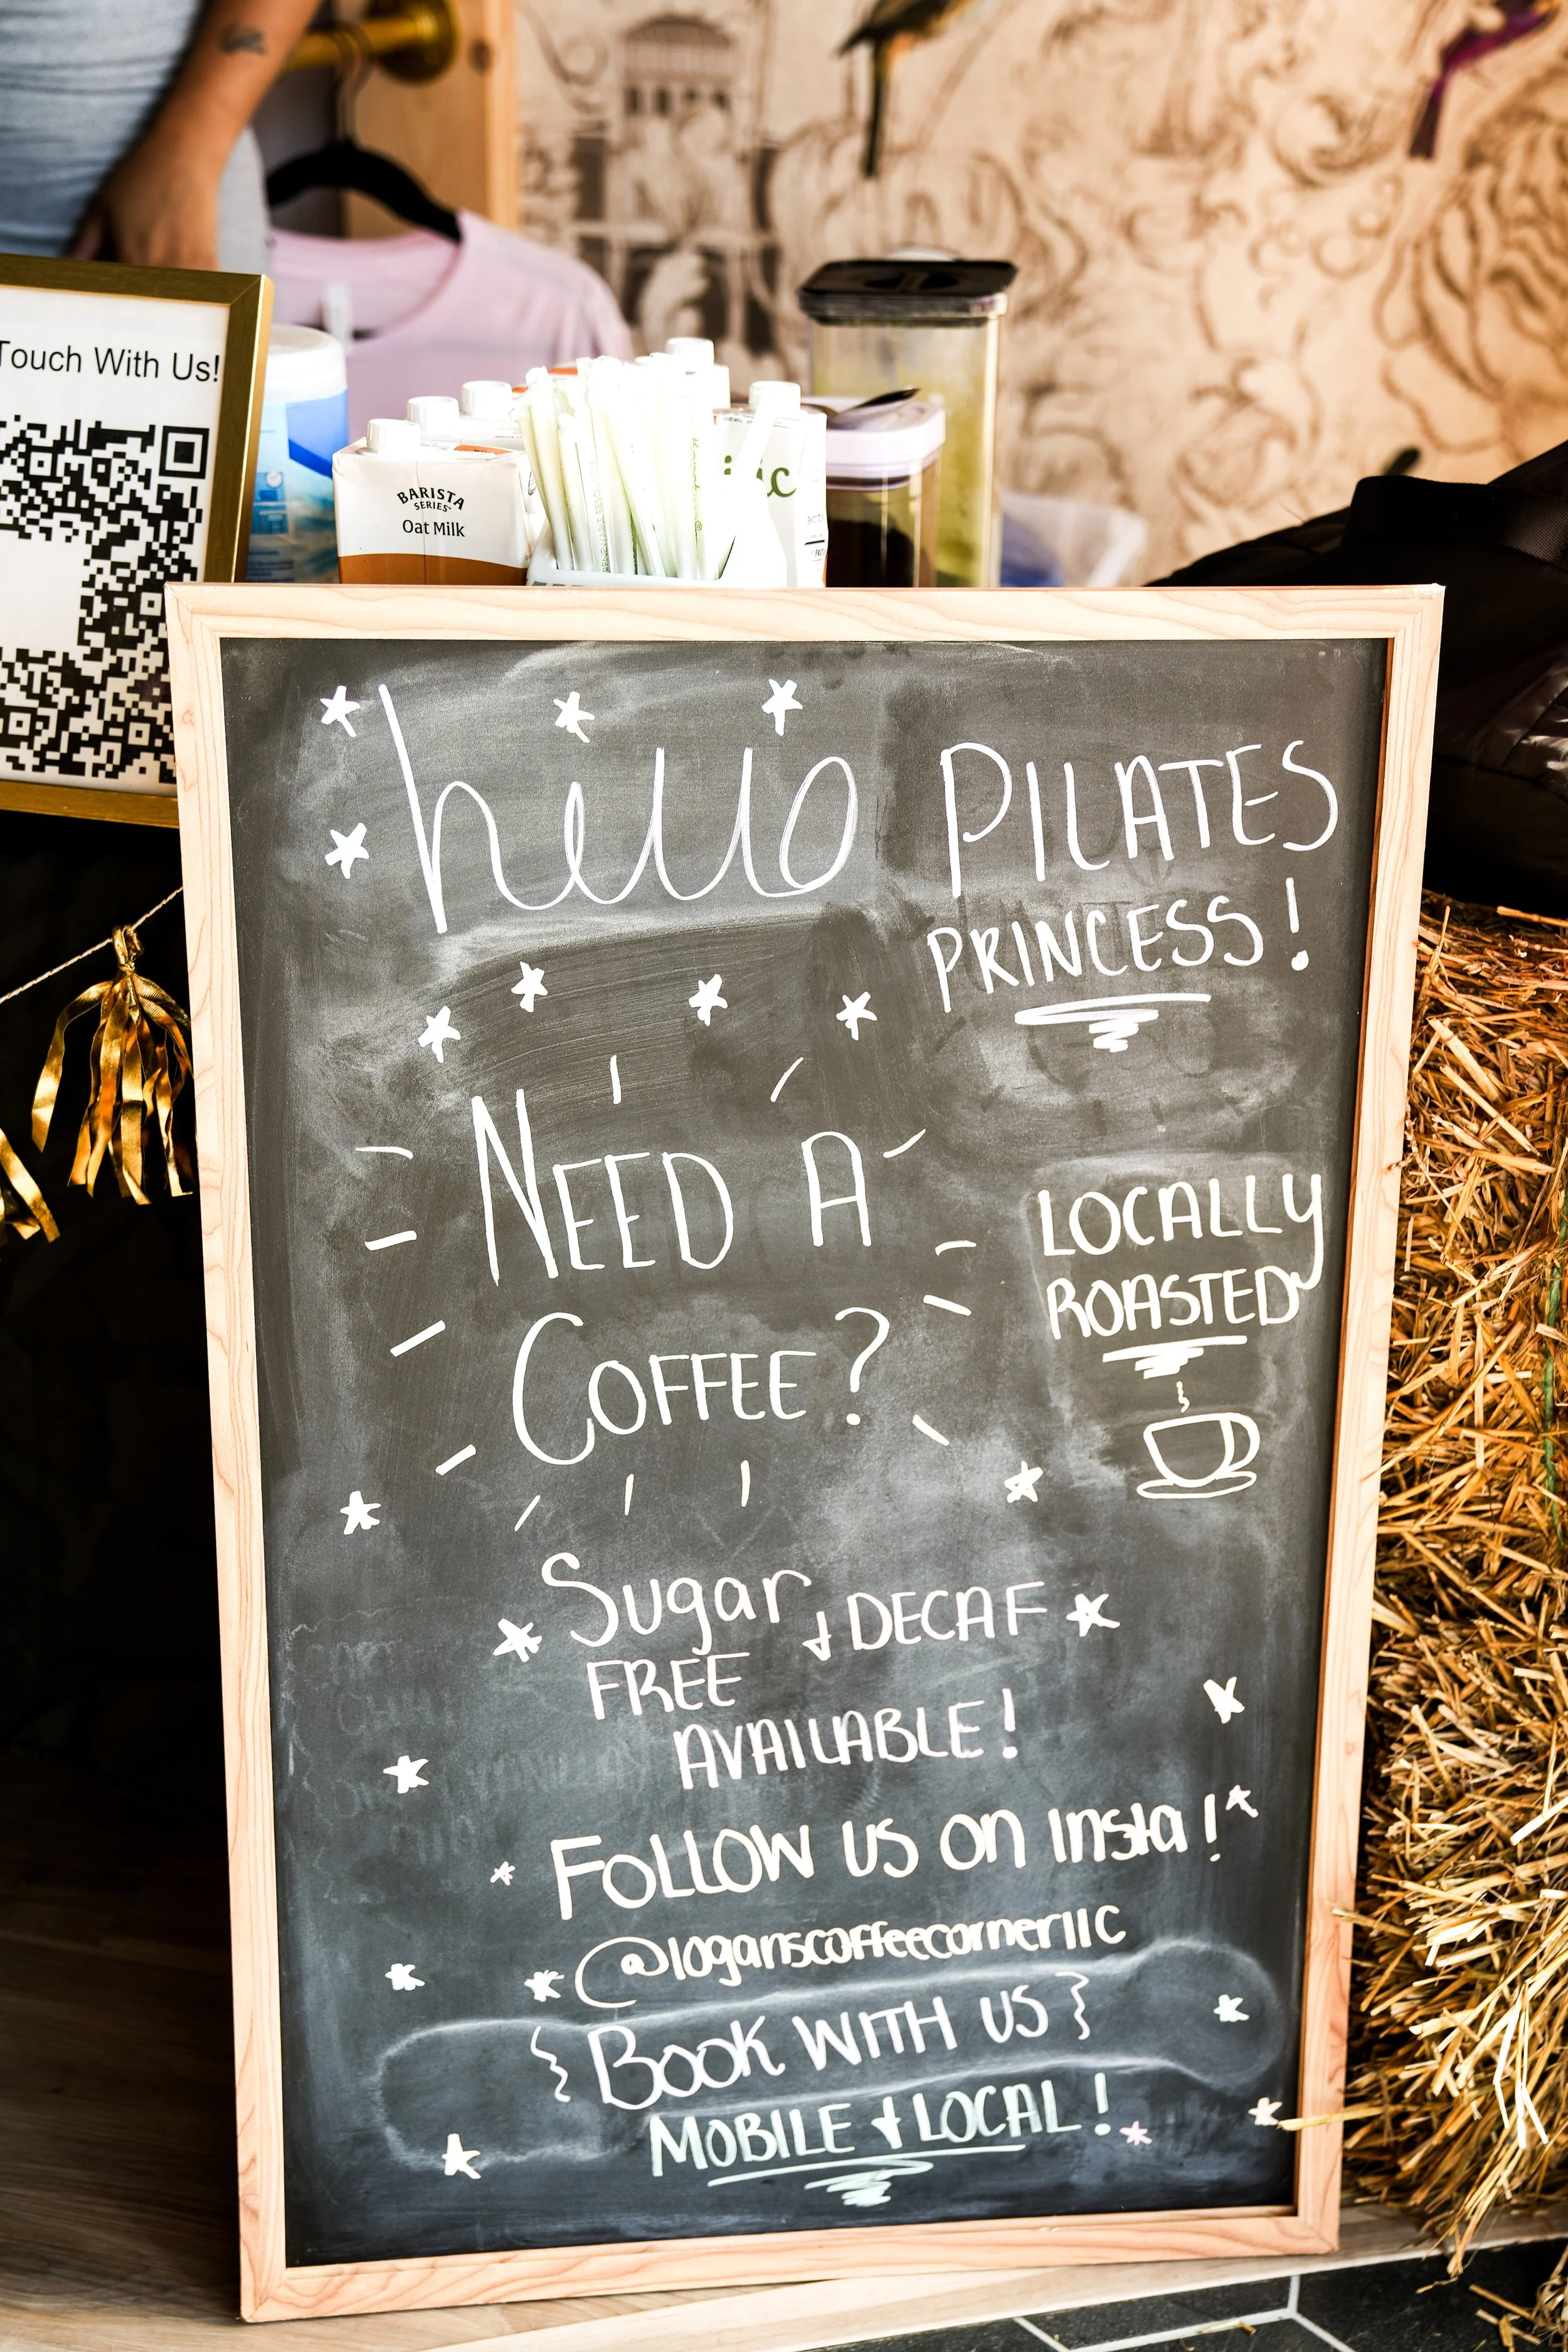 Touch With Us!
BARISTA
SERIES
Oat Milk
hello PILATES
PRINCESS!
NEED A
COFFEE?
LOCALLY
ROASTED
Sugar & DECAF
FREE
AVAILABLE!
FOLLOW US ON Insta!
@loganscoffeecornerllc
{BOOK WITH US}
MOBILE & LOCAL!